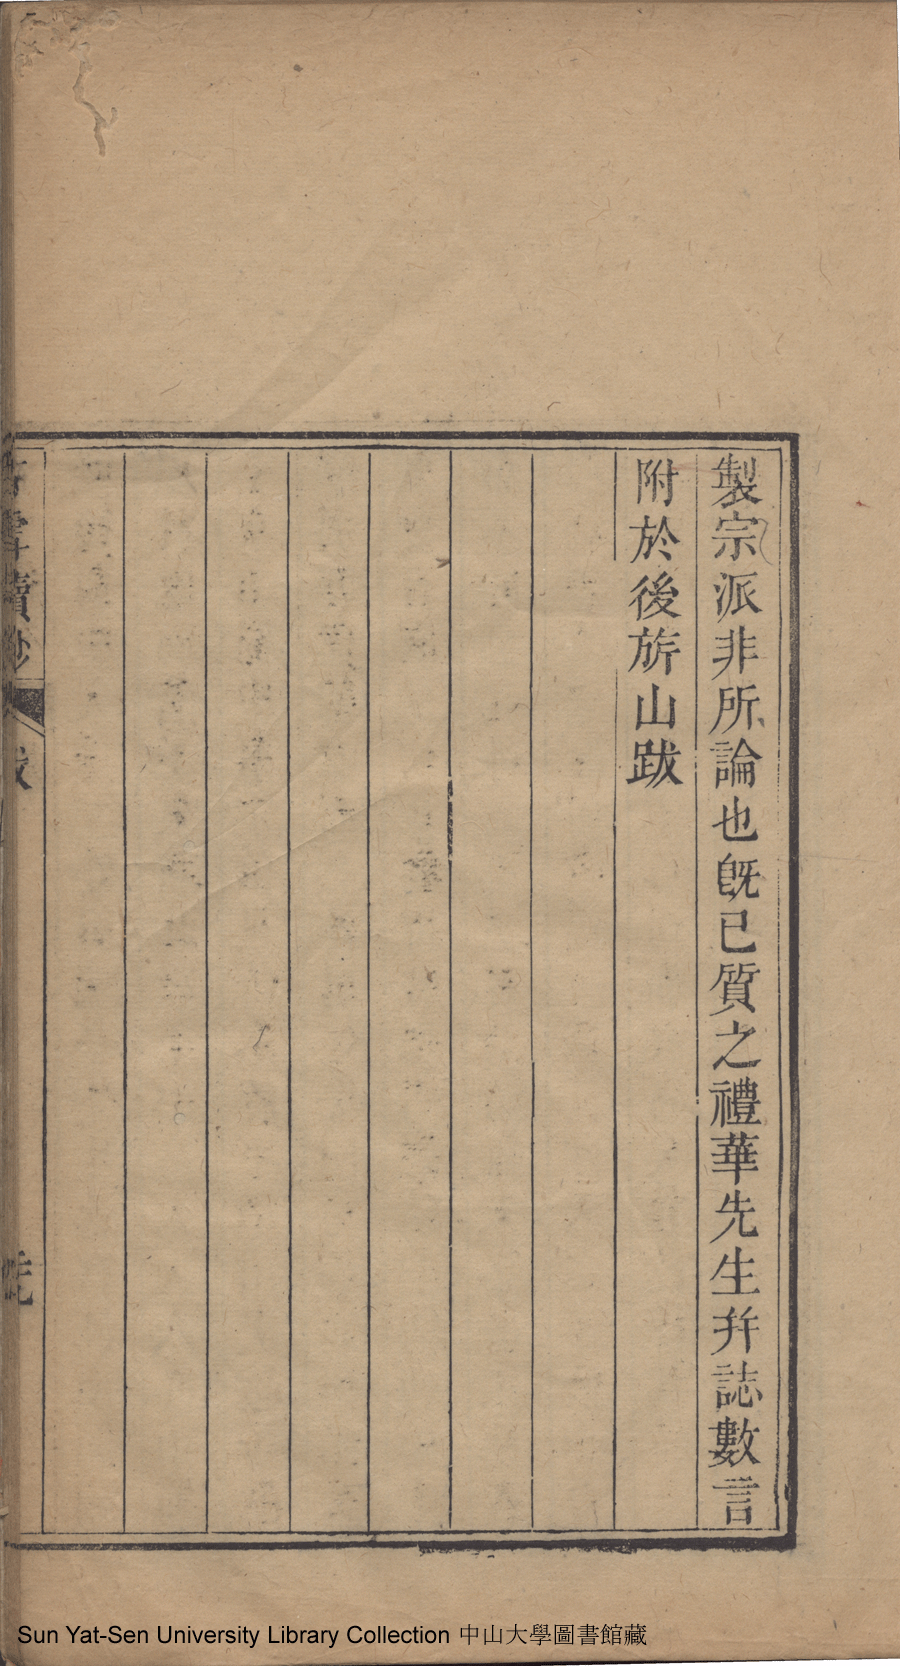 製宗派非所論也旣已質之禮華先生幷誌數言
附於後旂山跋
續鈔
跋
Sun Yat-Sen University Library Collection 中山大學圖書館藏